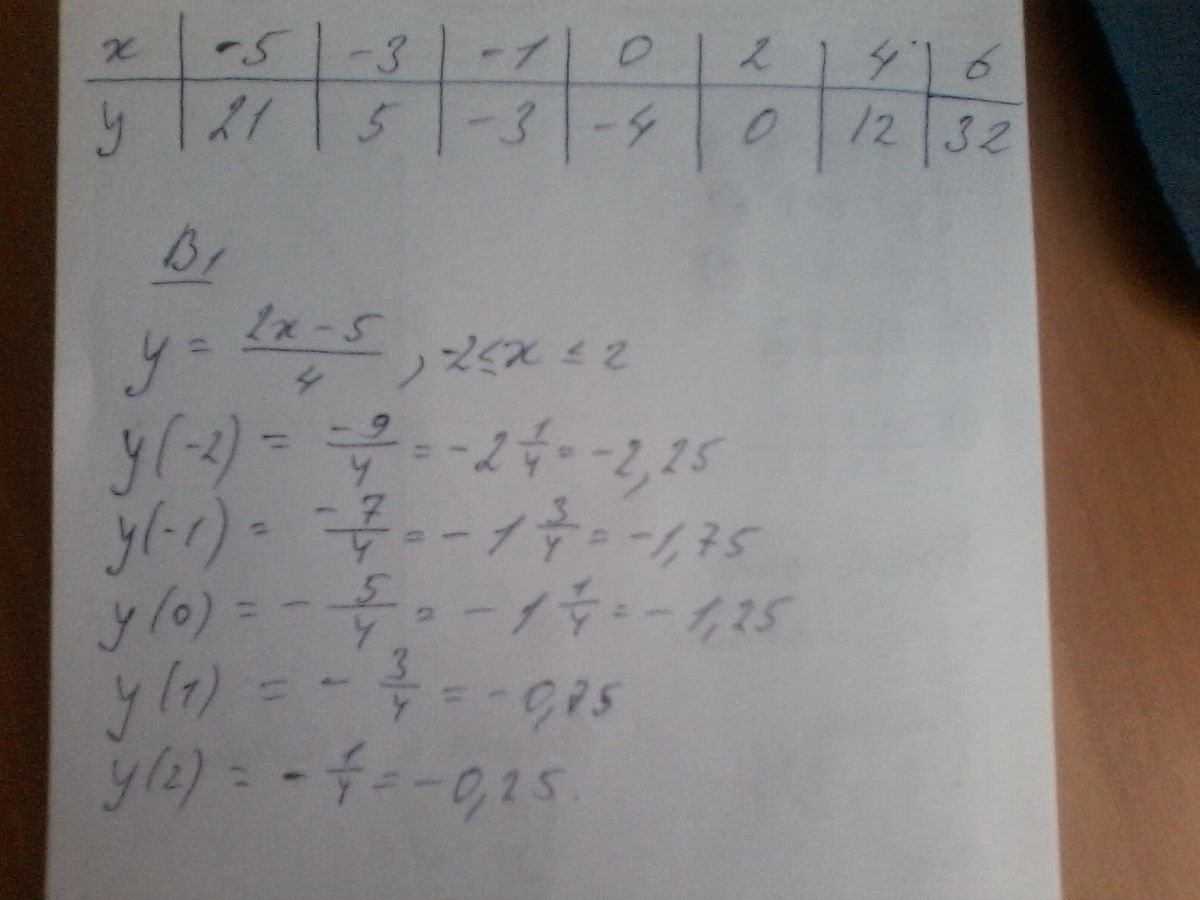 x | -5 | -3 | -1 | 0 | 2 | 4 | 6
y | 21 | 5 | -3 | -4 | 0 | 12 | 32
B1
y = (2x - 5)/4 , -2 ≤ x ≤ 2
y(-2) = -9/4 = -2 1/4 = -2,25
y(-1) = -7/4 = -1 3/4 = -1,75
y(0) = -5/4 = -1 1/4 = -1,25
y(1) = -3/4 = -0,75
y(2) = -1/4 = -0,25.